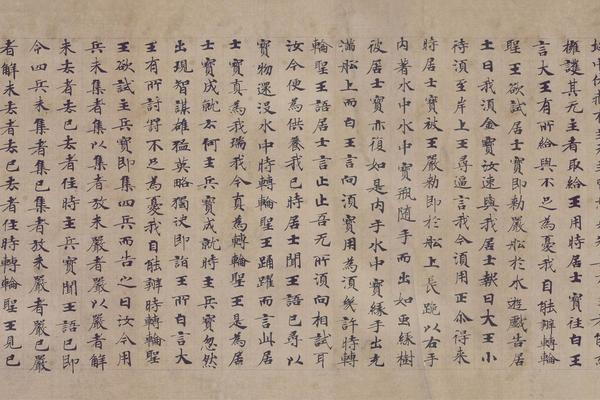 擁護其无主者取給王用時居士寶往白王
言大王有所給與不足為憂我自能辦轉輪
聖王欲試居士寶即勅嚴船於水遊戲告居
士曰我須金寶汝速與我居士報曰大王小
待須至岸上王尋逼言我今須用正尒得來
時居士寶被王嚴勅即於船上長跪以右手
內著水中水中寶瓶隨手而出如虫緣樹
彼居士寶亦復如是內手水中寶緣手出充
滿船上而白王言向須寶用為須幾許時轉
輪聖王語居士言止止吾无所須向相試耳
汝今便為供養我已時居士聞王語已尋以
寶物還沒水中時轉輪聖王踊躍而言此居
士寶真為我瑞我今真為轉輪聖王是為居
士寶成就云何主兵寶成就時主兵寶忽然
出現智謀雄猛英略獨決即詣王所白言大
王有所討罸不足為憂我自能辦時轉輪聖
王欲試主兵寶即集四兵而告之曰汝今用
兵未集者集以集者放未嚴者嚴以嚴者解
未去者去已去者住時主兵寶聞王語已即
令四兵未集者集已集者放未嚴者嚴已嚴
者解未去者去已去者住時轉輪聖王見已